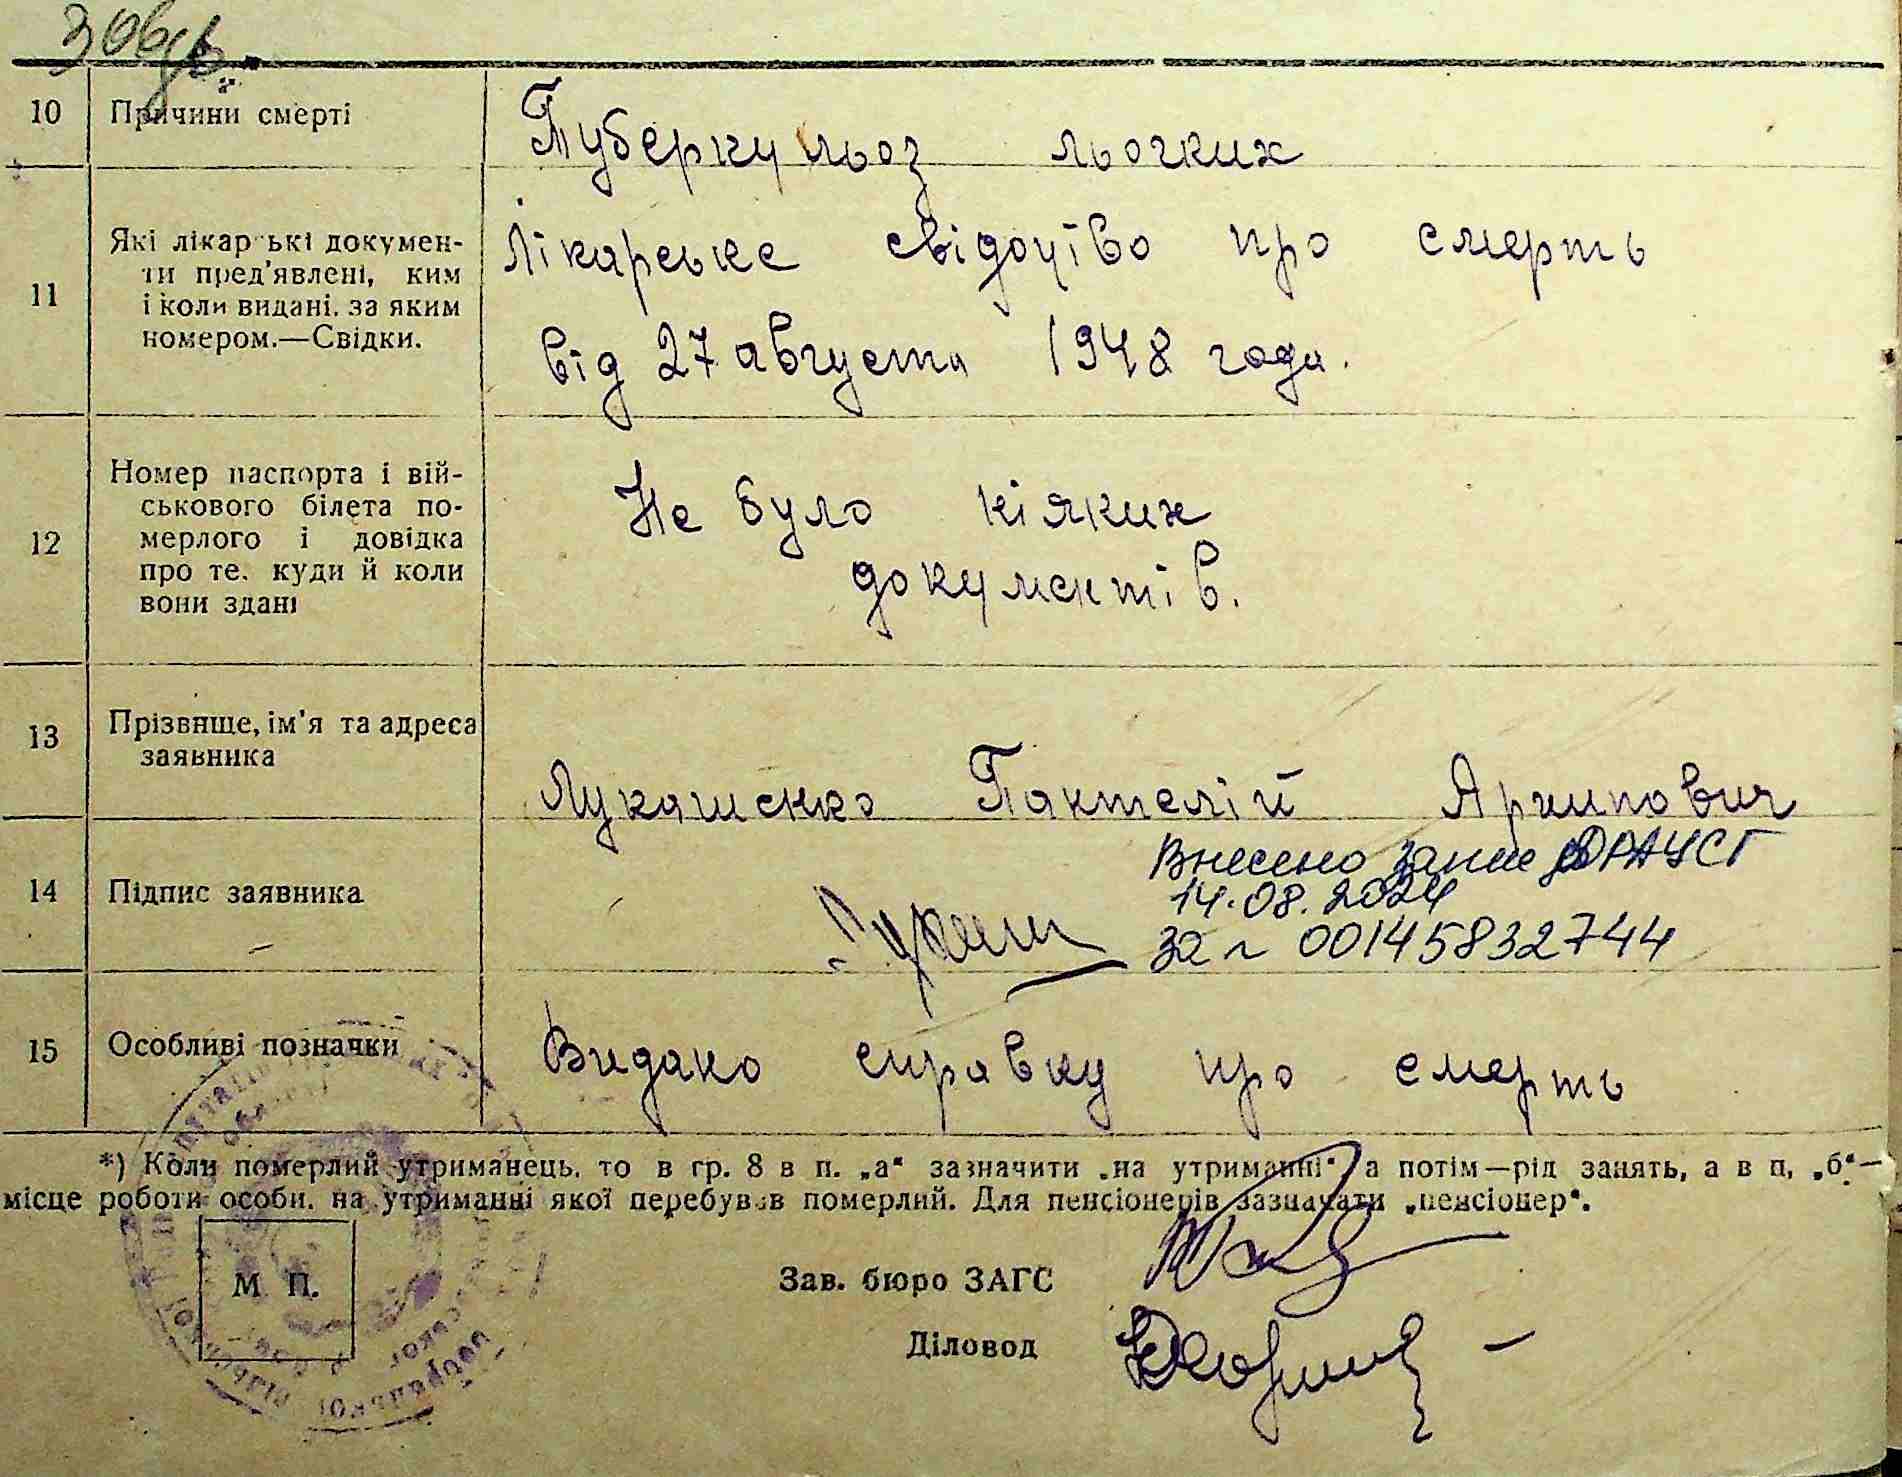 10 Причини смерті
Туберкульоз льогких
11 Які лікарські докумен-
ти пред'явлені, ким
і коли видані, за яким
номером.—Свідки.
Лікарське свідоцтво про смерть
від 27 августа 1948 года.
12 Номер паспорта і вій-
ськового білета по-
мерлого і довідка
про те, куди й коли
вони здані
Не було ніяких
документів.
13 Прізвище, ім'я та адреса
заявника
Лукашенко Пантелій Архипович
14 Підпис заявника
Внесено запис ДРАЦСГ
14.08.2024
за № 00145832744
15 Особливі позначки
Видано справку про смерть
*) Коли померлий утриманець, то в гр. 8 в п. „а“ зазначити „на утриманні“ а потім—рід занять, а в п. „б“—
місце роботи особи, на утриманні якої перебував померлий. Для пенсіонерів зазначати „пенсіонер“.
М. П.
Зав. бюро ЗАГС
Діловод